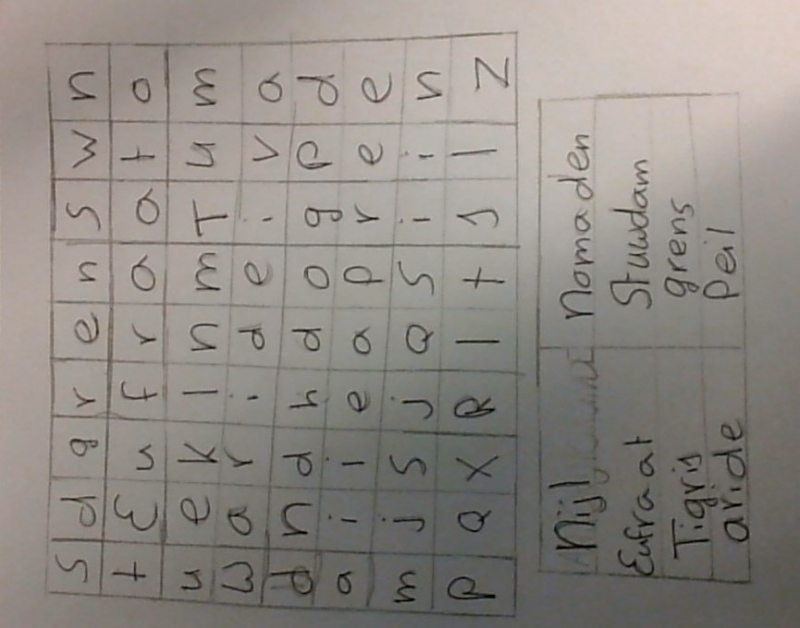 s d g r e n s w n
t E u f r a a t o
u e k l n m T u m
w a r i d e i v a
d n d h d o g p d
a i l e a p r e e
m j s j a s i i n
p a x R l t s l z
Nijl Nomaden
Eufraat Stuwdam
Tigris grens
aride peil